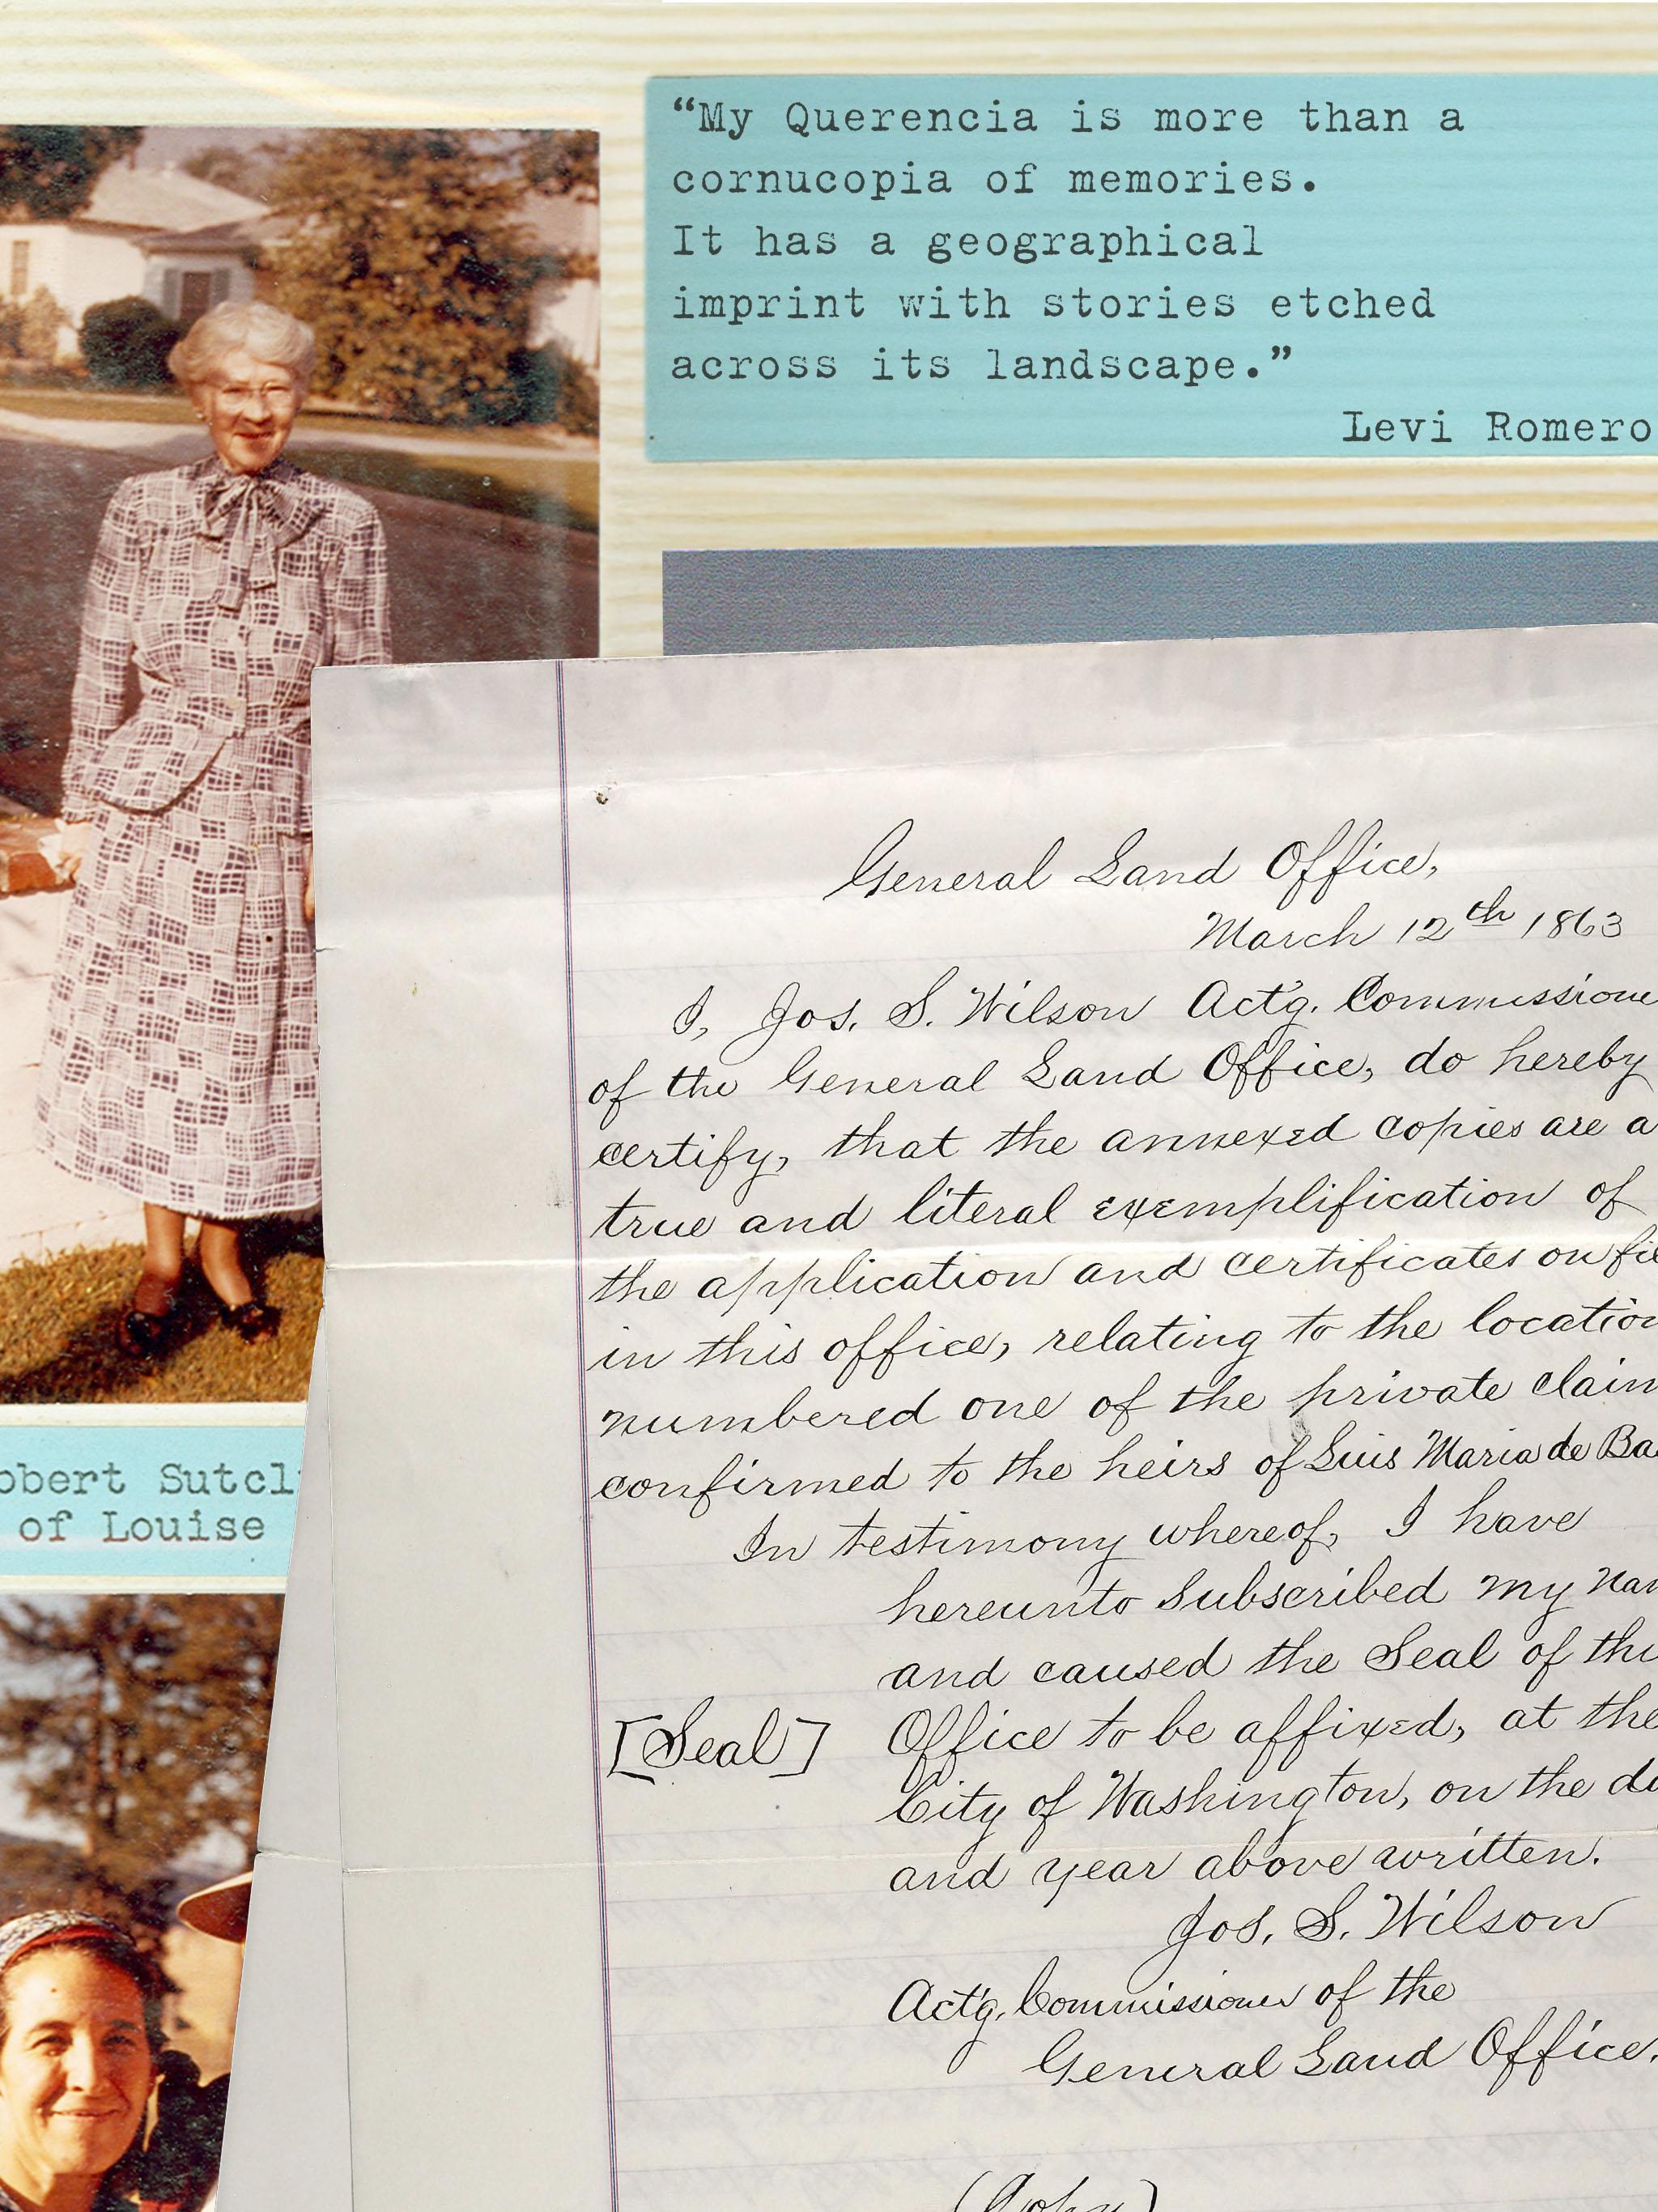 “My Querencia is more than a
cornucopia of memories.
It has a geographical
imprint with stories etched
across its landscape.”
Levi Romero
General Land Office,
March 12th 1863
I, Jos. S. Wilson Actg. Commissione
of the General Land Office, do hereby
certify, that the annexed copies are a
true and literal exemplification of
the application and certificates on fi
in this office, relating to the location
numbered one of the private claim
confirmed to the heirs of Luis Maria de Ba
In testimony whereof, I have
hereunto subscribed my nam
and caused the Seal of thi
[Seal] Office to be affixed, at the
City of Washington, on the da
and year above written.
Jos. S. Wilson
Act'g. Commissioner of the
General Land Office.
(Copy)
obert Sutcl
of Louise